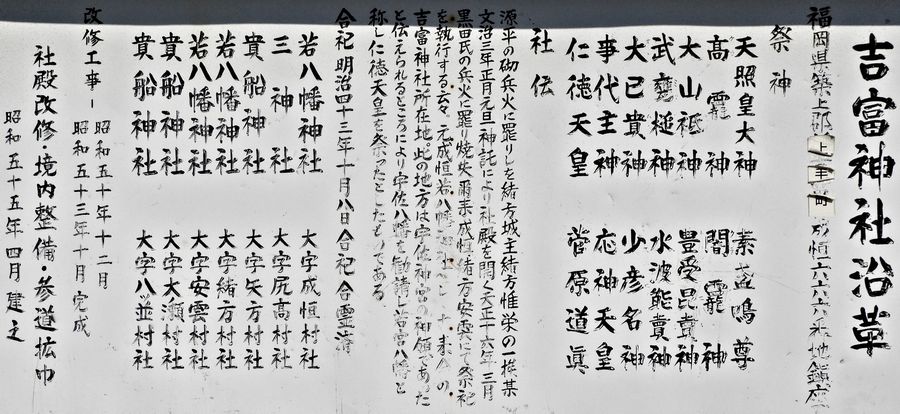 吉富神社沿革
福岡県築上郡上毛町成恒六六六番地鎮座
祭神
天照皇大神 素盞嗚尊
高龗神 闇龗神
大山祗神 豊受昆賣神
武甕槌神 水波能賣神
大己貴神 少彦名神
事代主神 応神天皇
仁徳天皇 菅原道眞
社伝
源平の砌兵火に罹りしを緒方城主緒方惟栄の一族某
文治三年正月元旦神託により社殿を開く天正十六年三月
黒田氏の兵火に罹り焼失爾来成恒緒方安雲にて祭祀
を執行する云々 元成恒若八幡
吉富神社所在地。此の地方は宇佐神宮の神領であった
と伝えられるところにより宇佐八幡を勧請し若宮八幡と
称し仁徳天皇を祭ったとしたものである
合祀 明治四十三年十月八日合祀合霊済
若八幡神社 大字成恒村社
三神社 大字尻高村社
貴船神社 大字矢方村社
若八幡神社 大字緒方村社
若八幡神社 大字安雲村社
貴船神社 大字大瀬村社
貴船神社 大字八並村社
改修工事ー 昭和五十年十二月
昭和五十三年十月完成
社殿改修・境内整備・参道拡巾
昭和五十五年四月建之